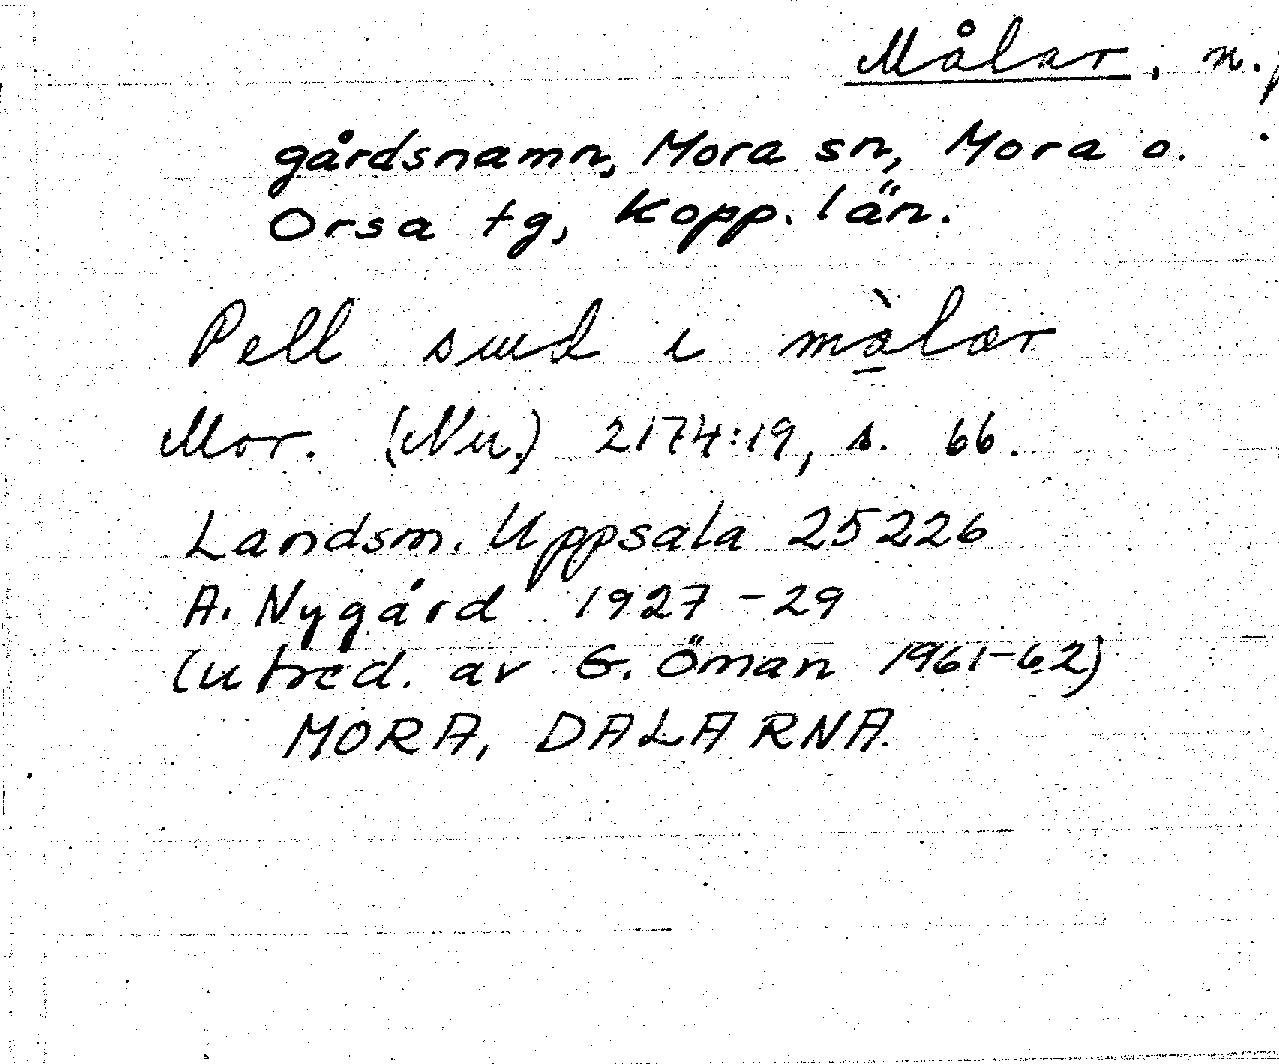 Målar, n.
gårdsnamn, Mora sn, Mora o.
Orsa tg, Kopp. län.
Pell i màlar
Mor. (Nu.) 2174:19, s. 66.
Landsm. Uppsala 25226
A. Nygård 1927-29
(utred. av G. Öman 1961-62)
MORA, DALARNA.